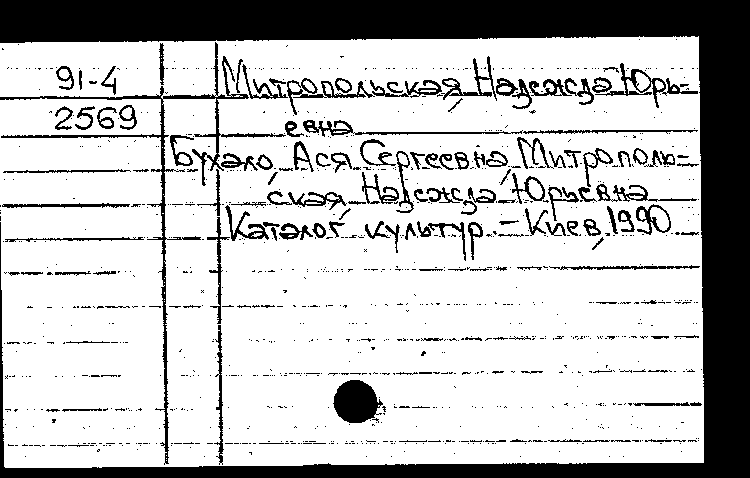 91-4 Митропольская, Надежда Юрь-
2569 евна
Бухало, Ася Сергеевна, Митрополь-
ская, Надежда Юрьевна
Каталог культур. - Киев, 1990